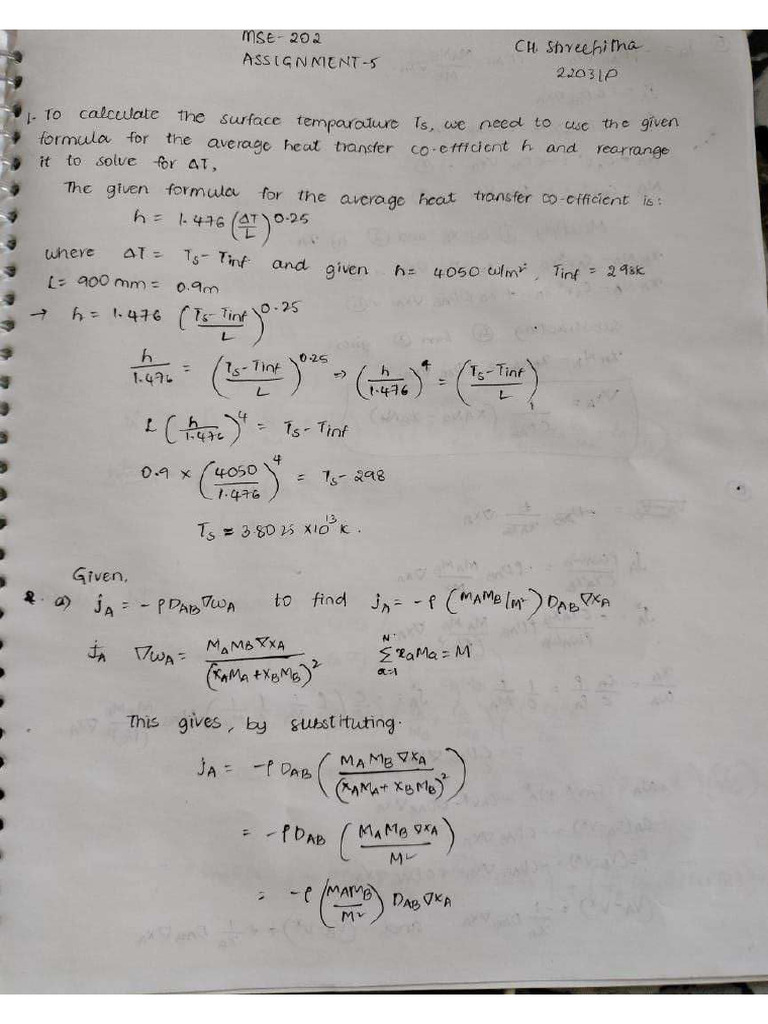 MSE-202
ASSIGNMENT-5
CH. Shreehitha
22031P
1. To calculate the surface temparature Ts, we need to use the given
formula for the average heat transfer co-efficient h and rearrange
it to solve for ΔT,
The given formula for the average heat transfer co-efficient is:
h = 1.476 (ΔT/L)^0.25
where ΔT = Ts - Tinf and given h = 4050 w/m², Tinf = 298k
L = 900 mm = 0.9m
→ h = 1.476 (Ts - Tinf/L)^0.25
h/1.476 = (Ts - Tinf/L)^0.25 ⇒ (h/1.476)^4 = (Ts - Tinf/L)
L (h/1.476)^4 = Ts - Tinf
0.9 × (4050/1.476)^4 = Ts - 298
Ts ≈ 3.8025 ×10^13 K.
Given,
2. a) jA = -ρDAB∇ωA to find jA = -ρ (MAMB/M²) DAB∇xA
jA ∇ωA = MAMB∇xA/(xAMA + xBMB)² N∑α=1 xαMα = M
This gives, by substituting.
jA = -ρDAB (MAMB∇xA/(xAMA + xBMB)²)
= -ρDAB (MAMB∇xA/M²)
= -ρ (MAMB/M²) DAB∇xA